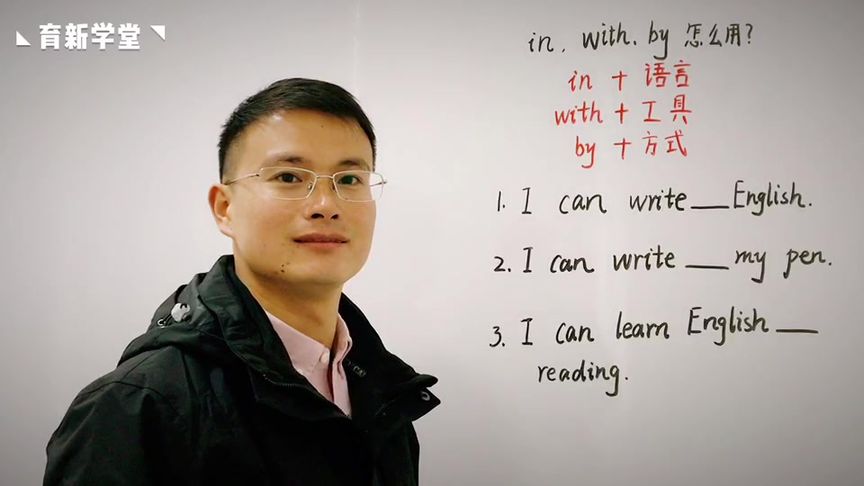 育新学堂
in, with, by 怎么用?
in + 语言
with + 工具
by + 方式
1. I can write __ English.
2. I can write __ my pen.
3. I can learn English __
reading.